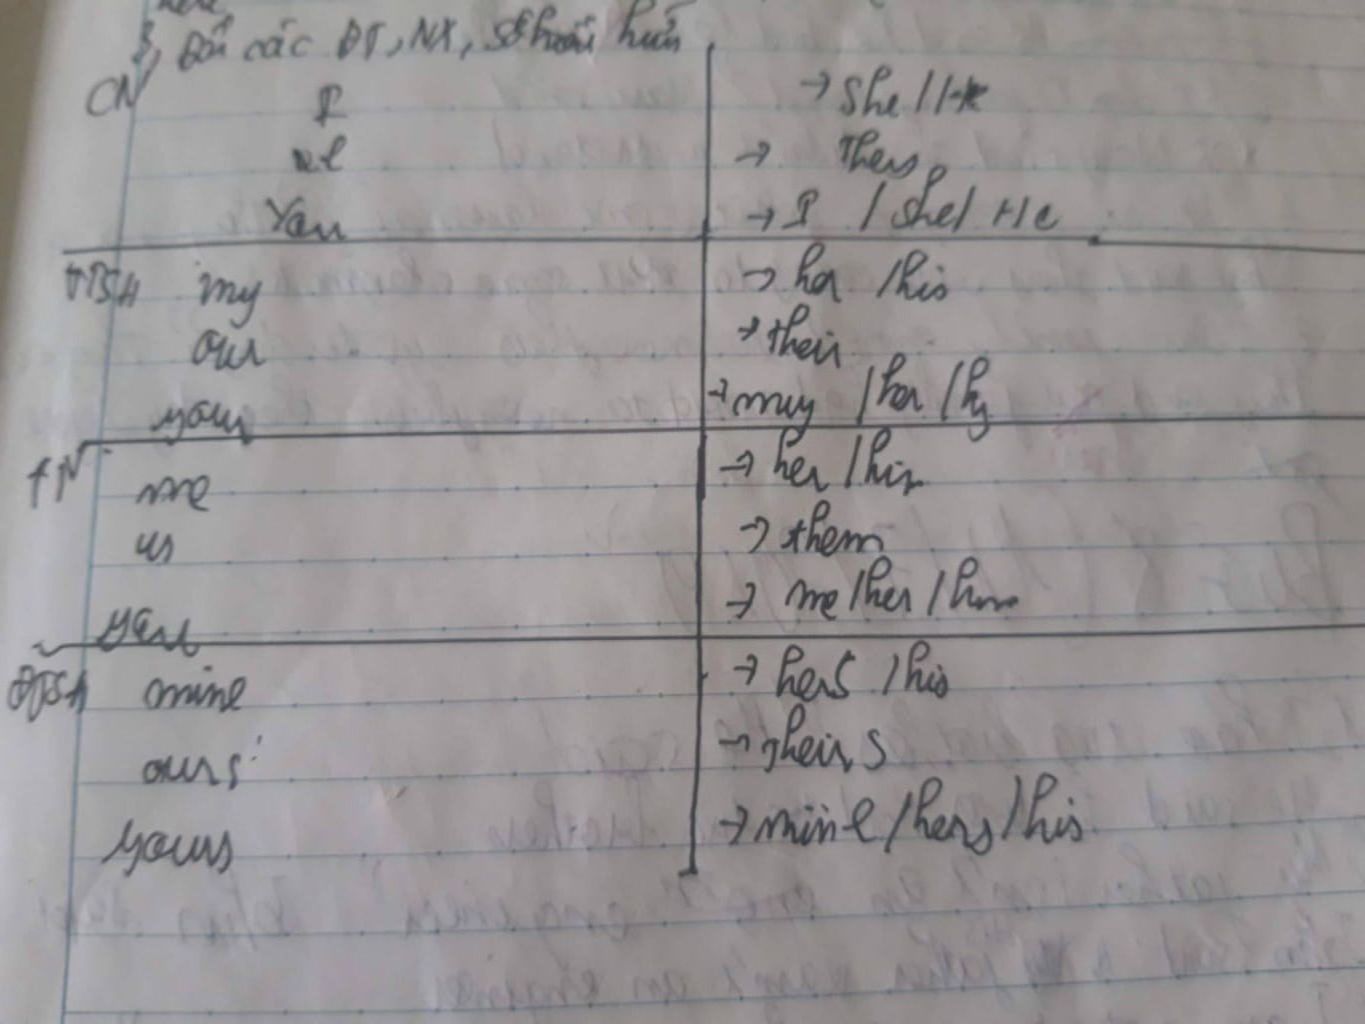 3, Đổi các ĐT, NX, Sở hữu
CN I → She / He
we → They
You → I / She / He
TTSH my → her / his
our → their
your → my / her / his
TN me → her / him
us → them
you → me / her / him
ĐTSH mine → hers / his
ours → Theirs
yours → mine / hers / his